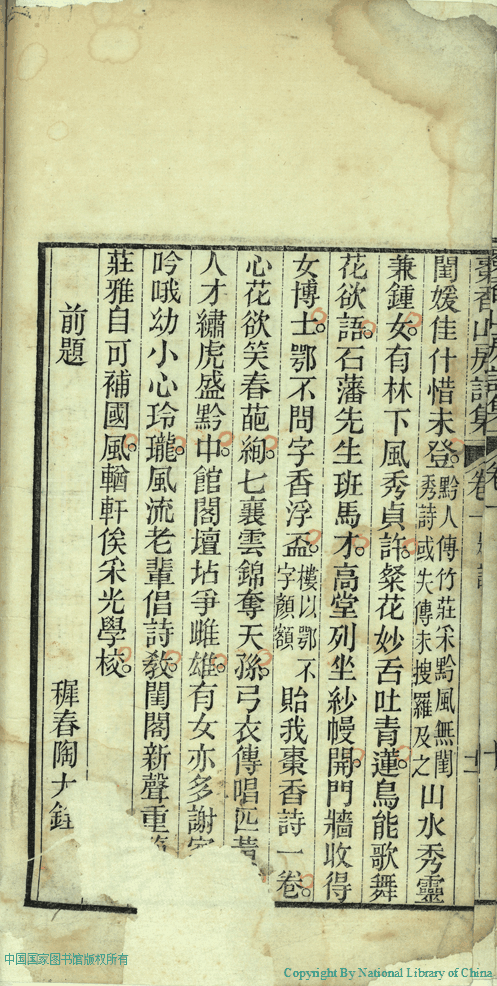 棗香山房詩集 卷一 題詞
閨媛佳什惜未登黔人傳竹莊采黔風無閨秀詩或失傳未搜羅及之山水秀靈
兼鍾女有林下風秀貞許粲花妙舌吐青蓮鳥能歌舞
花欲語石藩先生班馬才高堂列坐紗幔開門牆收得
女博士鄂不問字香浮盃樓以鄂不字顏額貽我棗香詩一卷
心花欲笑春葩絢七襄雲錦奪天孫弓衣傳唱匹黃
人才繡虎盛黔中館閣壇坫爭雌雄有女亦多謝家
吟哦幼小心玲瓏風流老輩倡詩教閨閣新聲重
莊雅自可補國風輶軒俟采光學校
前題
穉春陶大銓
中国国家图书馆版权所有
Copyright By National Library of China